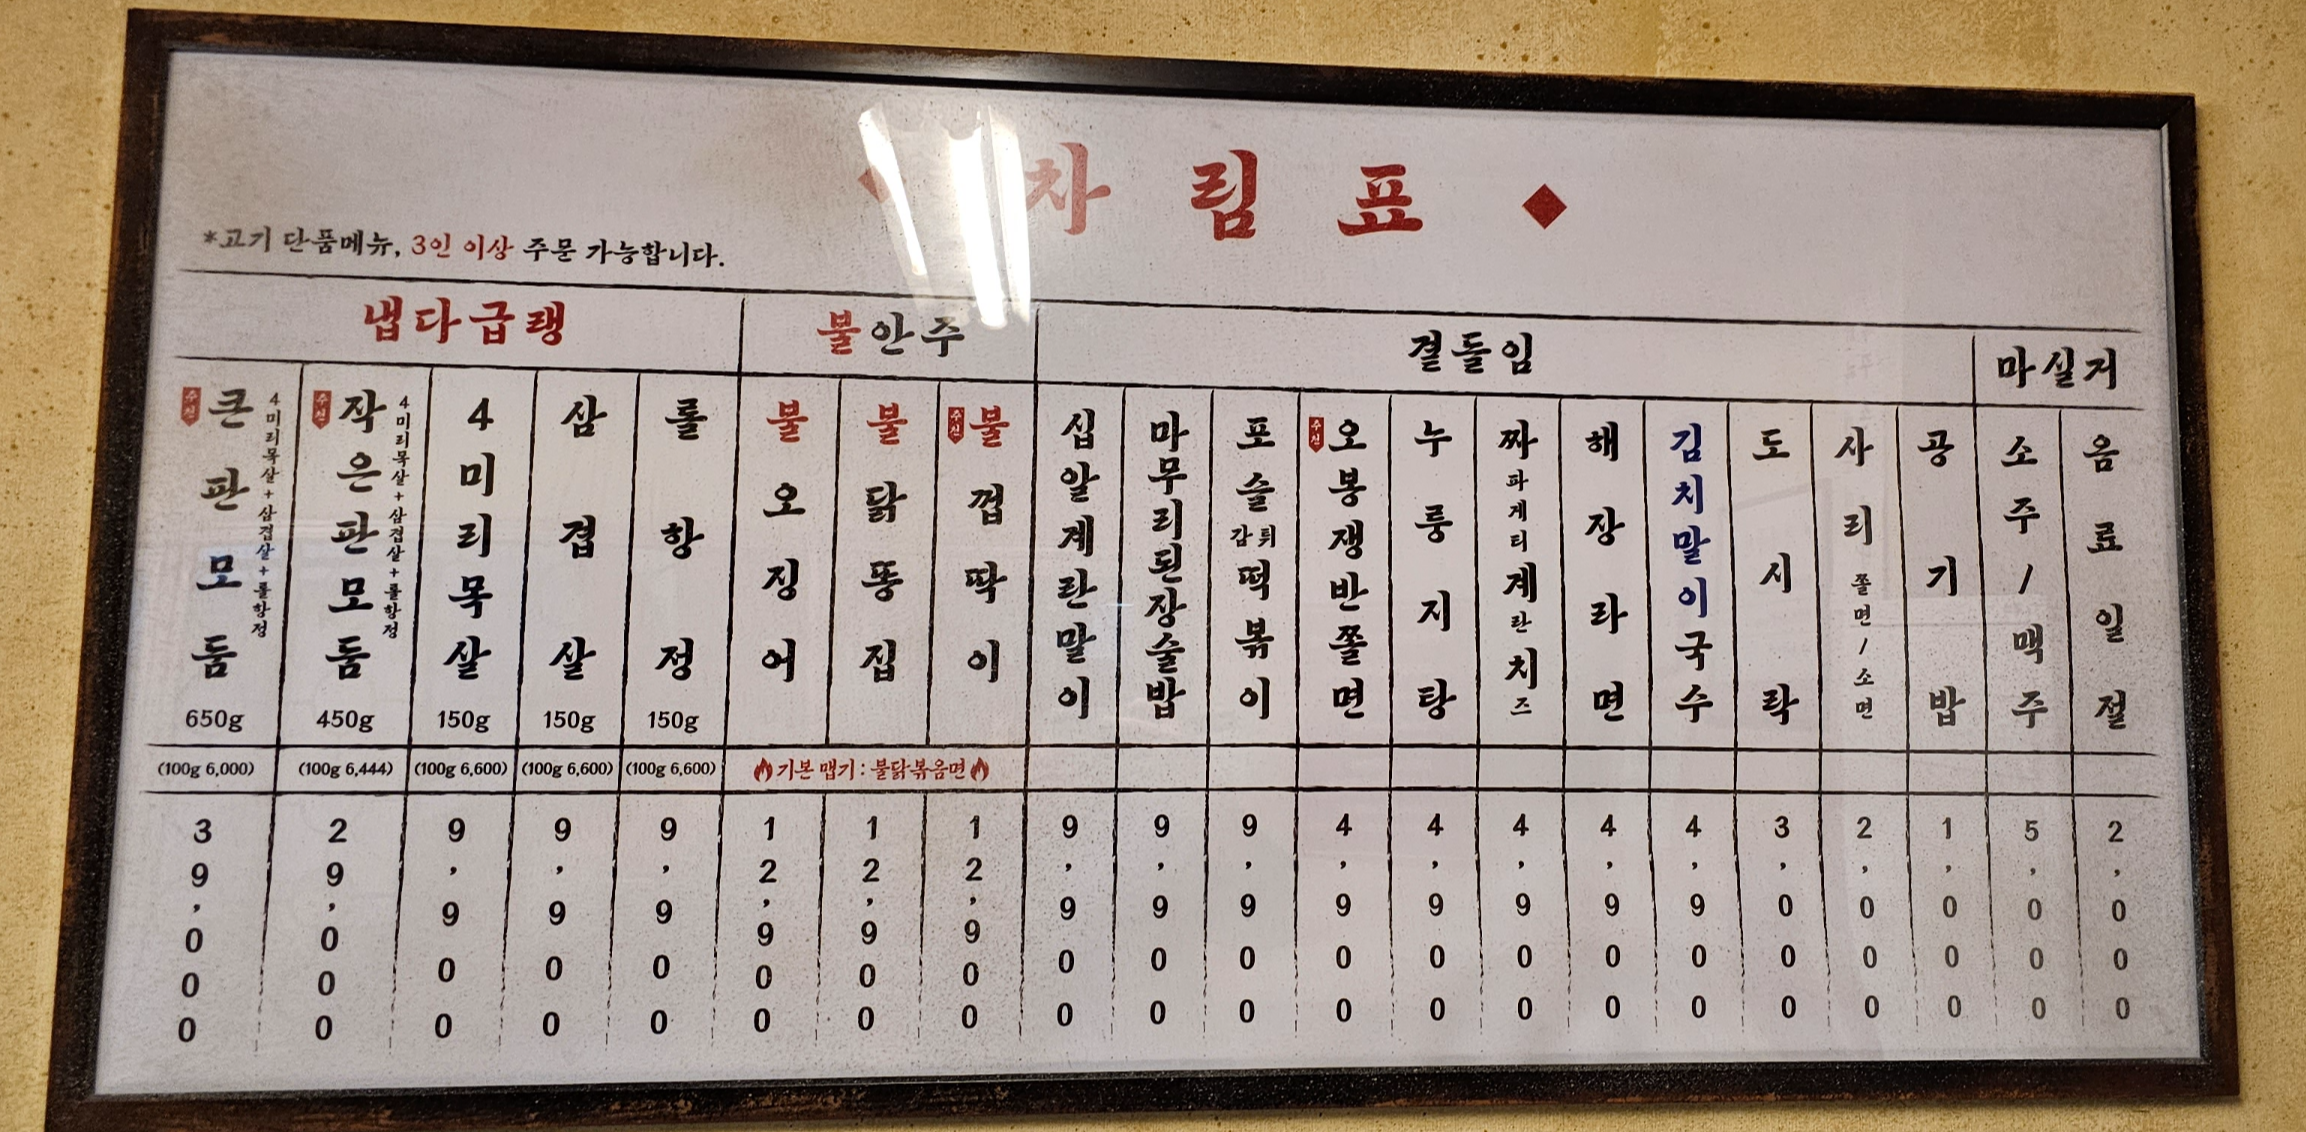 ◆ 차림표 ◆
*고기 단품메뉴, 3인 이상 주문 가능합니다.
냅다급랭
추천 큰판모둠 4미리목살+삼겹살+롤항정 650g
(100g 6,000)
39,000
추천 작은판모둠 4미리목살+삼겹살+롤항정 450g
(100g 6,444)
29,000
4미리목살 150g
(100g 6,600)
9,900
삼겹살 150g
(100g 6,600)
9,900
롤항정 150g
(100g 6,600)
9,900
불안주
불오징어
12,900
불닭똥집
12,900
추천 불껍딱이
12,900
기본 맵기 : 불닭볶음면
곁들임
십알계란말이
9,900
마무리된장술밥
9,900
포슬감튀떡볶이
9,900
추천 오봉쟁반쫄면
4,900
누룽지탕
4,900
짜파게티계란치즈
4,900
해장라면
4,900
김치말이국수
4,900
도시락
3,000
사리 쫄면/소면
2,000
공기밥
1,000
마실거
소주/맥주
5,000
음료일절
2,000